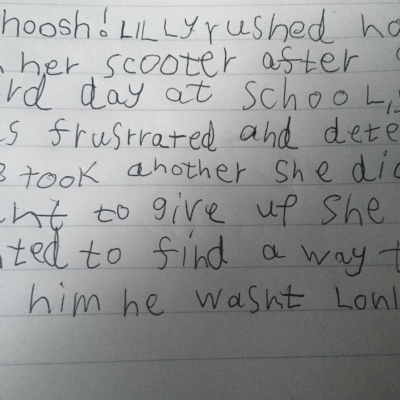 hoosh! LILLY rushed ho
her scooter after
rd day at SCHOOL,
s frusrrated and dete
TOOK another she did
nt to give up she
ted to find a way t
him he wasnt Lonl